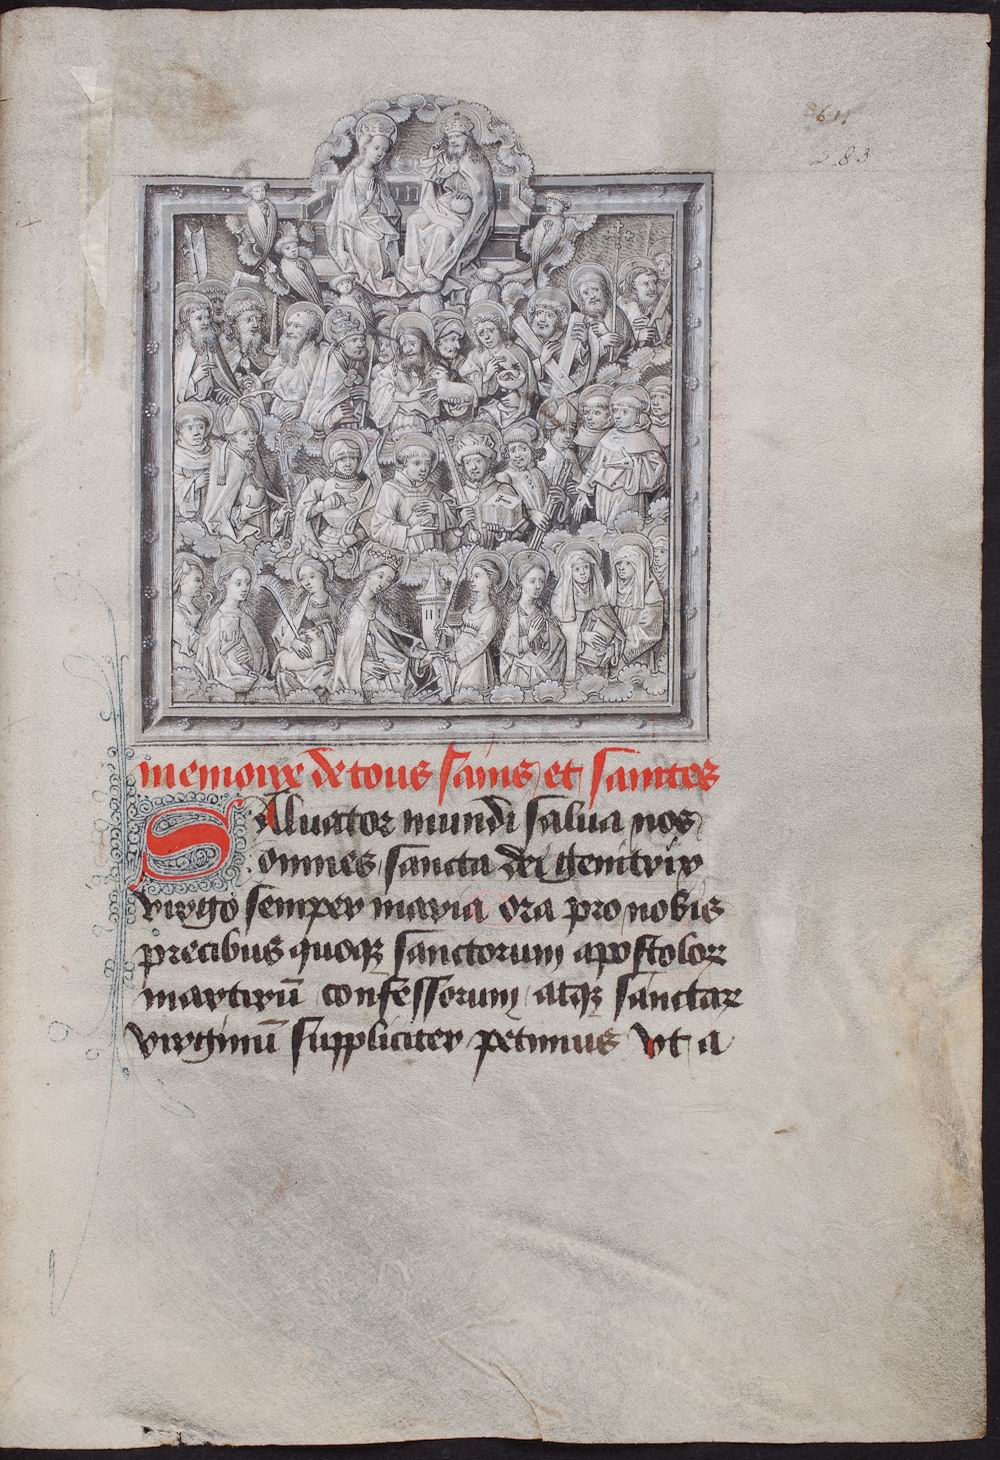 283
memoire de tous sains et saintes
SAluator mundi salua nos
omnes sancta dei genitrix
virgo semper maria ora pro nobis
precibus quoqꝫ sanctorum apostoloꝝ
martirū confessorum atqꝫ sanctaꝝ
virginū suppliciter petimus vt a